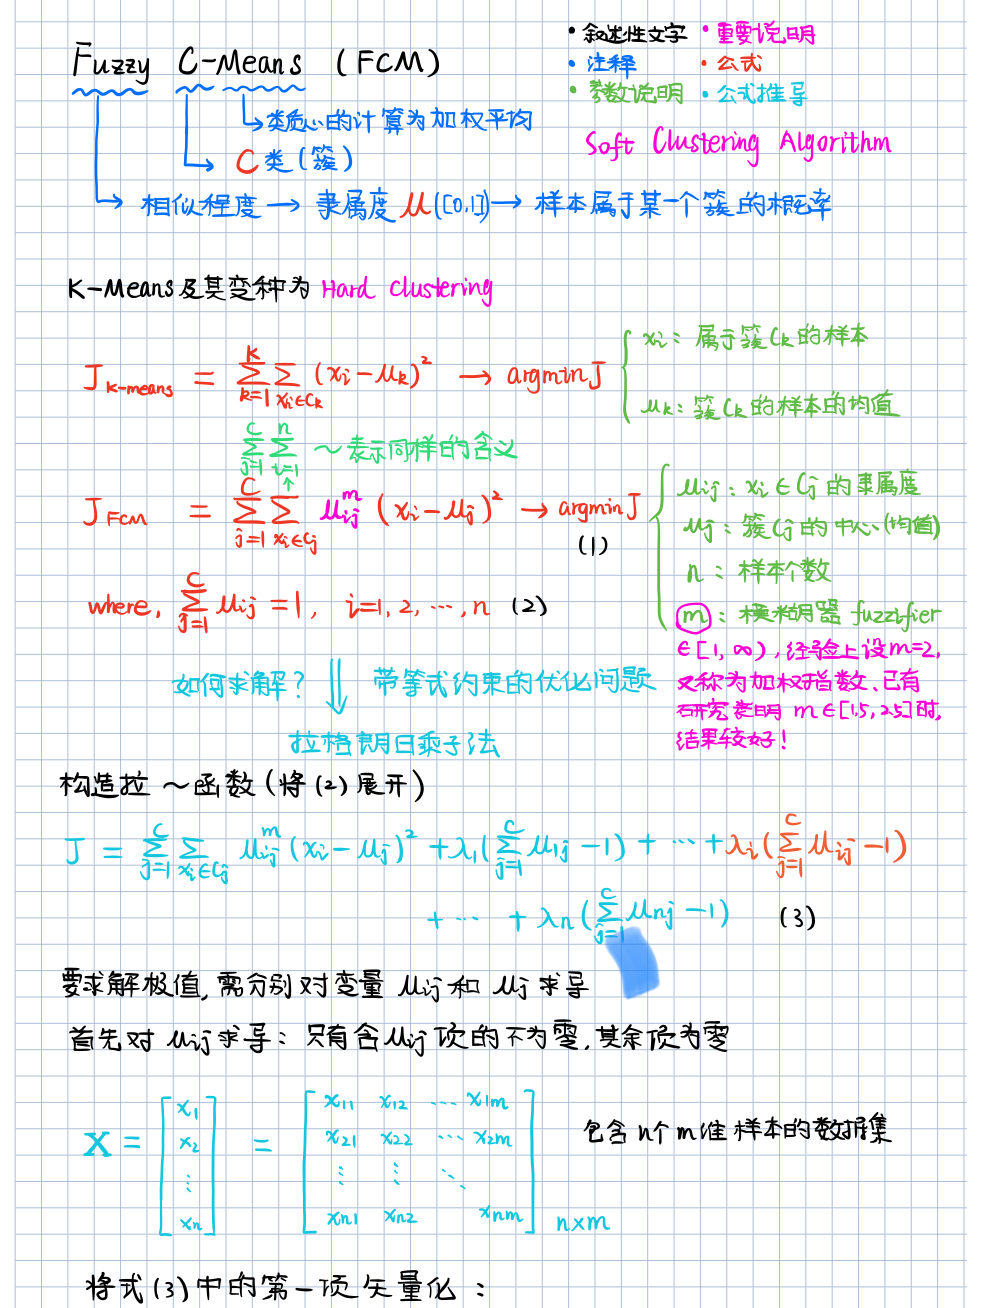 Fuzzy C-Means (FCM)
• 叙述性文字 • 重要说明
• 注释 • 公式
• 参数说明 • 公式推导
Soft Clustering Algorithm
类质心的计算为加权平均
C类(簇)
相似程度 → 隶属度 μ([0,1]) → 样本属于某一个簇的概率
K-Means及其变种为 Hard Clustering
J_{K-means} = \sum_{k=1}^{K} \sum_{x_i∈C_k} (x_i - μ_k)^2 → argmin J
x_i: 属于簇C_k的样本
μ_k: 簇C_k的样本的均值
\sum_{j=1}^{C} \sum_{i=1}^{n} ~表示同样的含义
J_{FCM} = \sum_{j=1}^{C} \sum_{x_i∈C_j} μ_{ij}^m (x_i - μ_j)^2 → argmin J (1)
μ_{ij}: x_i∈C_j 的隶属度
μ_j: 簇C_j的中心(均值)
n: 样本个数
m: 模糊器 fuzzifier
∈[1, ∞), 经验上设m=2,
又称为加权指数、已有
研究表明 m∈[1.5, 2.5]时,
结果较好!
where, \sum_{j=1}^{C} μ_{ij} = 1, i=1, 2, ..., n (2)
如何求解? ⇓ 带等式约束的优化问题
拉格朗日乘子法
构造拉~函数(将(2)展开)
J = \sum_{j=1}^{C} \sum_{x_i∈C_j} μ_{ij}^m (x_i - μ_j)^2 + λ_1(\sum_{j=1}^{C} μ_{1j} - 1) + ... + λ_i(\sum_{j=1}^{C} μ_{ij} - 1)
+ ... + λ_n(\sum_{j=1}^{C} μ_{nj} - 1) (3)
要求解极值, 需分别对变量 μ_{ij} 和 μ_j 求导
首先对 μ_{ij} 求导: 只有含 μ_{ij} 项的不为零, 其余项为零
X = [x_1 x_2 ⋮ x_n] = [x_{11} x_{12} ... x_{1m}
x_{21} x_{22} ... x_{2m}
⋮ ⋮ ⋱
x_{n1} x_{n2} x_{nm}] n×m
包含 n个m维样本的数据集
将式(3)中的第一项矢量化: